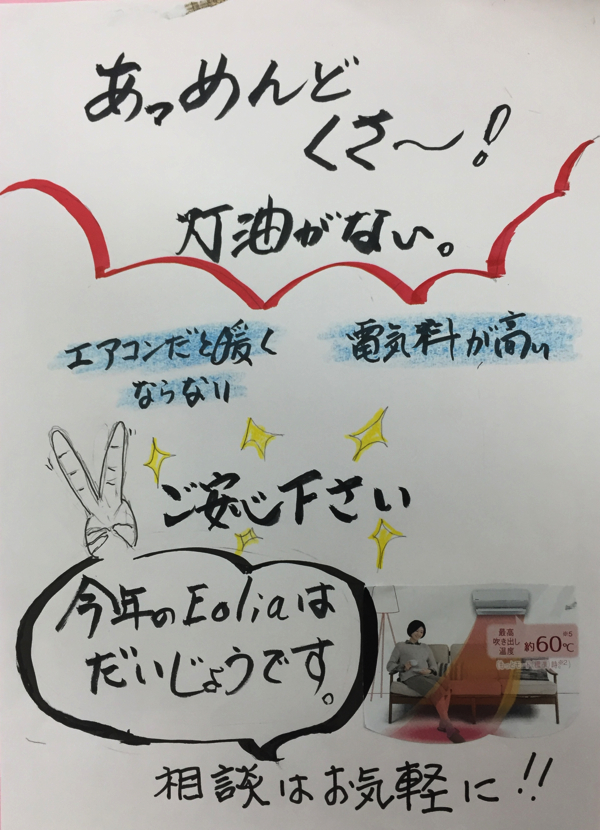 あっめんど
くさ〜!
灯油がない。
エアコンだと暖く
ならない
電気料が高い
ご安心下さい
今年のEoliaは
だいじょうです。
最高
吹き出し
温度
約60℃
※5
相談はお気軽に!!